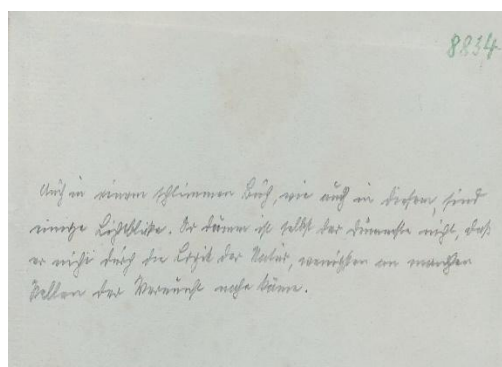 8834
Auch in einem schlimmen Buch, wie auch in diesem, sind
einige Lichtblicke. So dumm ist selbst der Dümmste nicht, daß
er nicht durch die Logik der Natur, wenigsten an manchen
Stellen der Vernunft nahe käme.